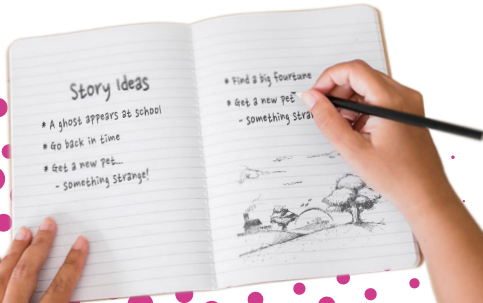 Story Ideas
* A ghost appears at school
* Go back in time
* Get a new pet...
- something strange!
* Find a big fourtune
* Get a new pet
- something